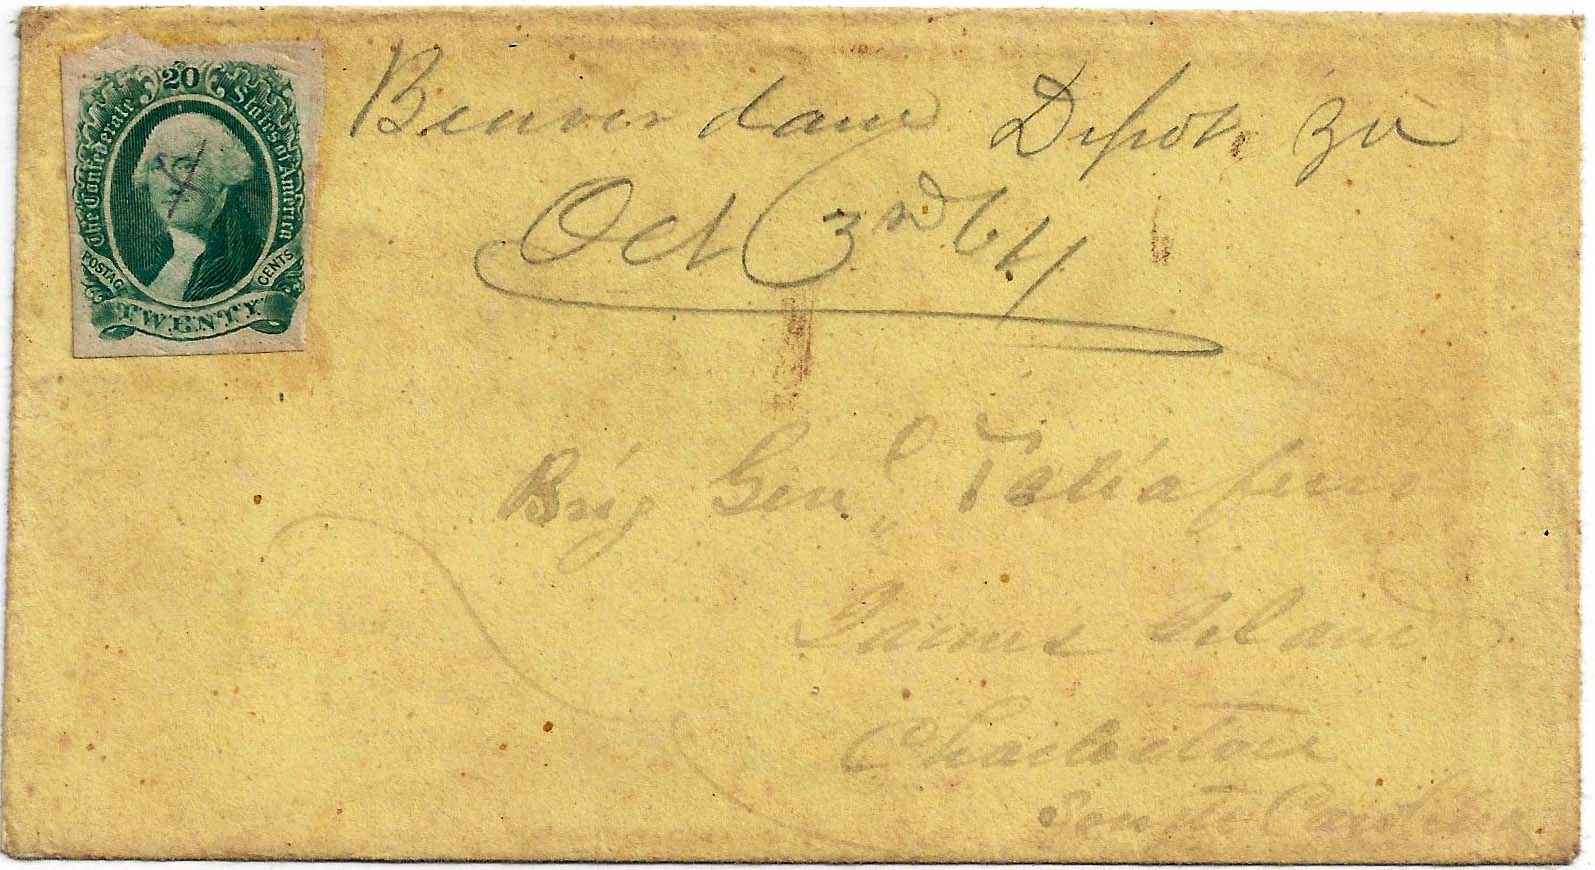 20
The Confederate States of America
POSTAGE CENTS
TWENTY
Beaver dam Depot Va
Oct 3rd 64
Brig Genl Taliaferro
James Island
Charleston
South Carolina